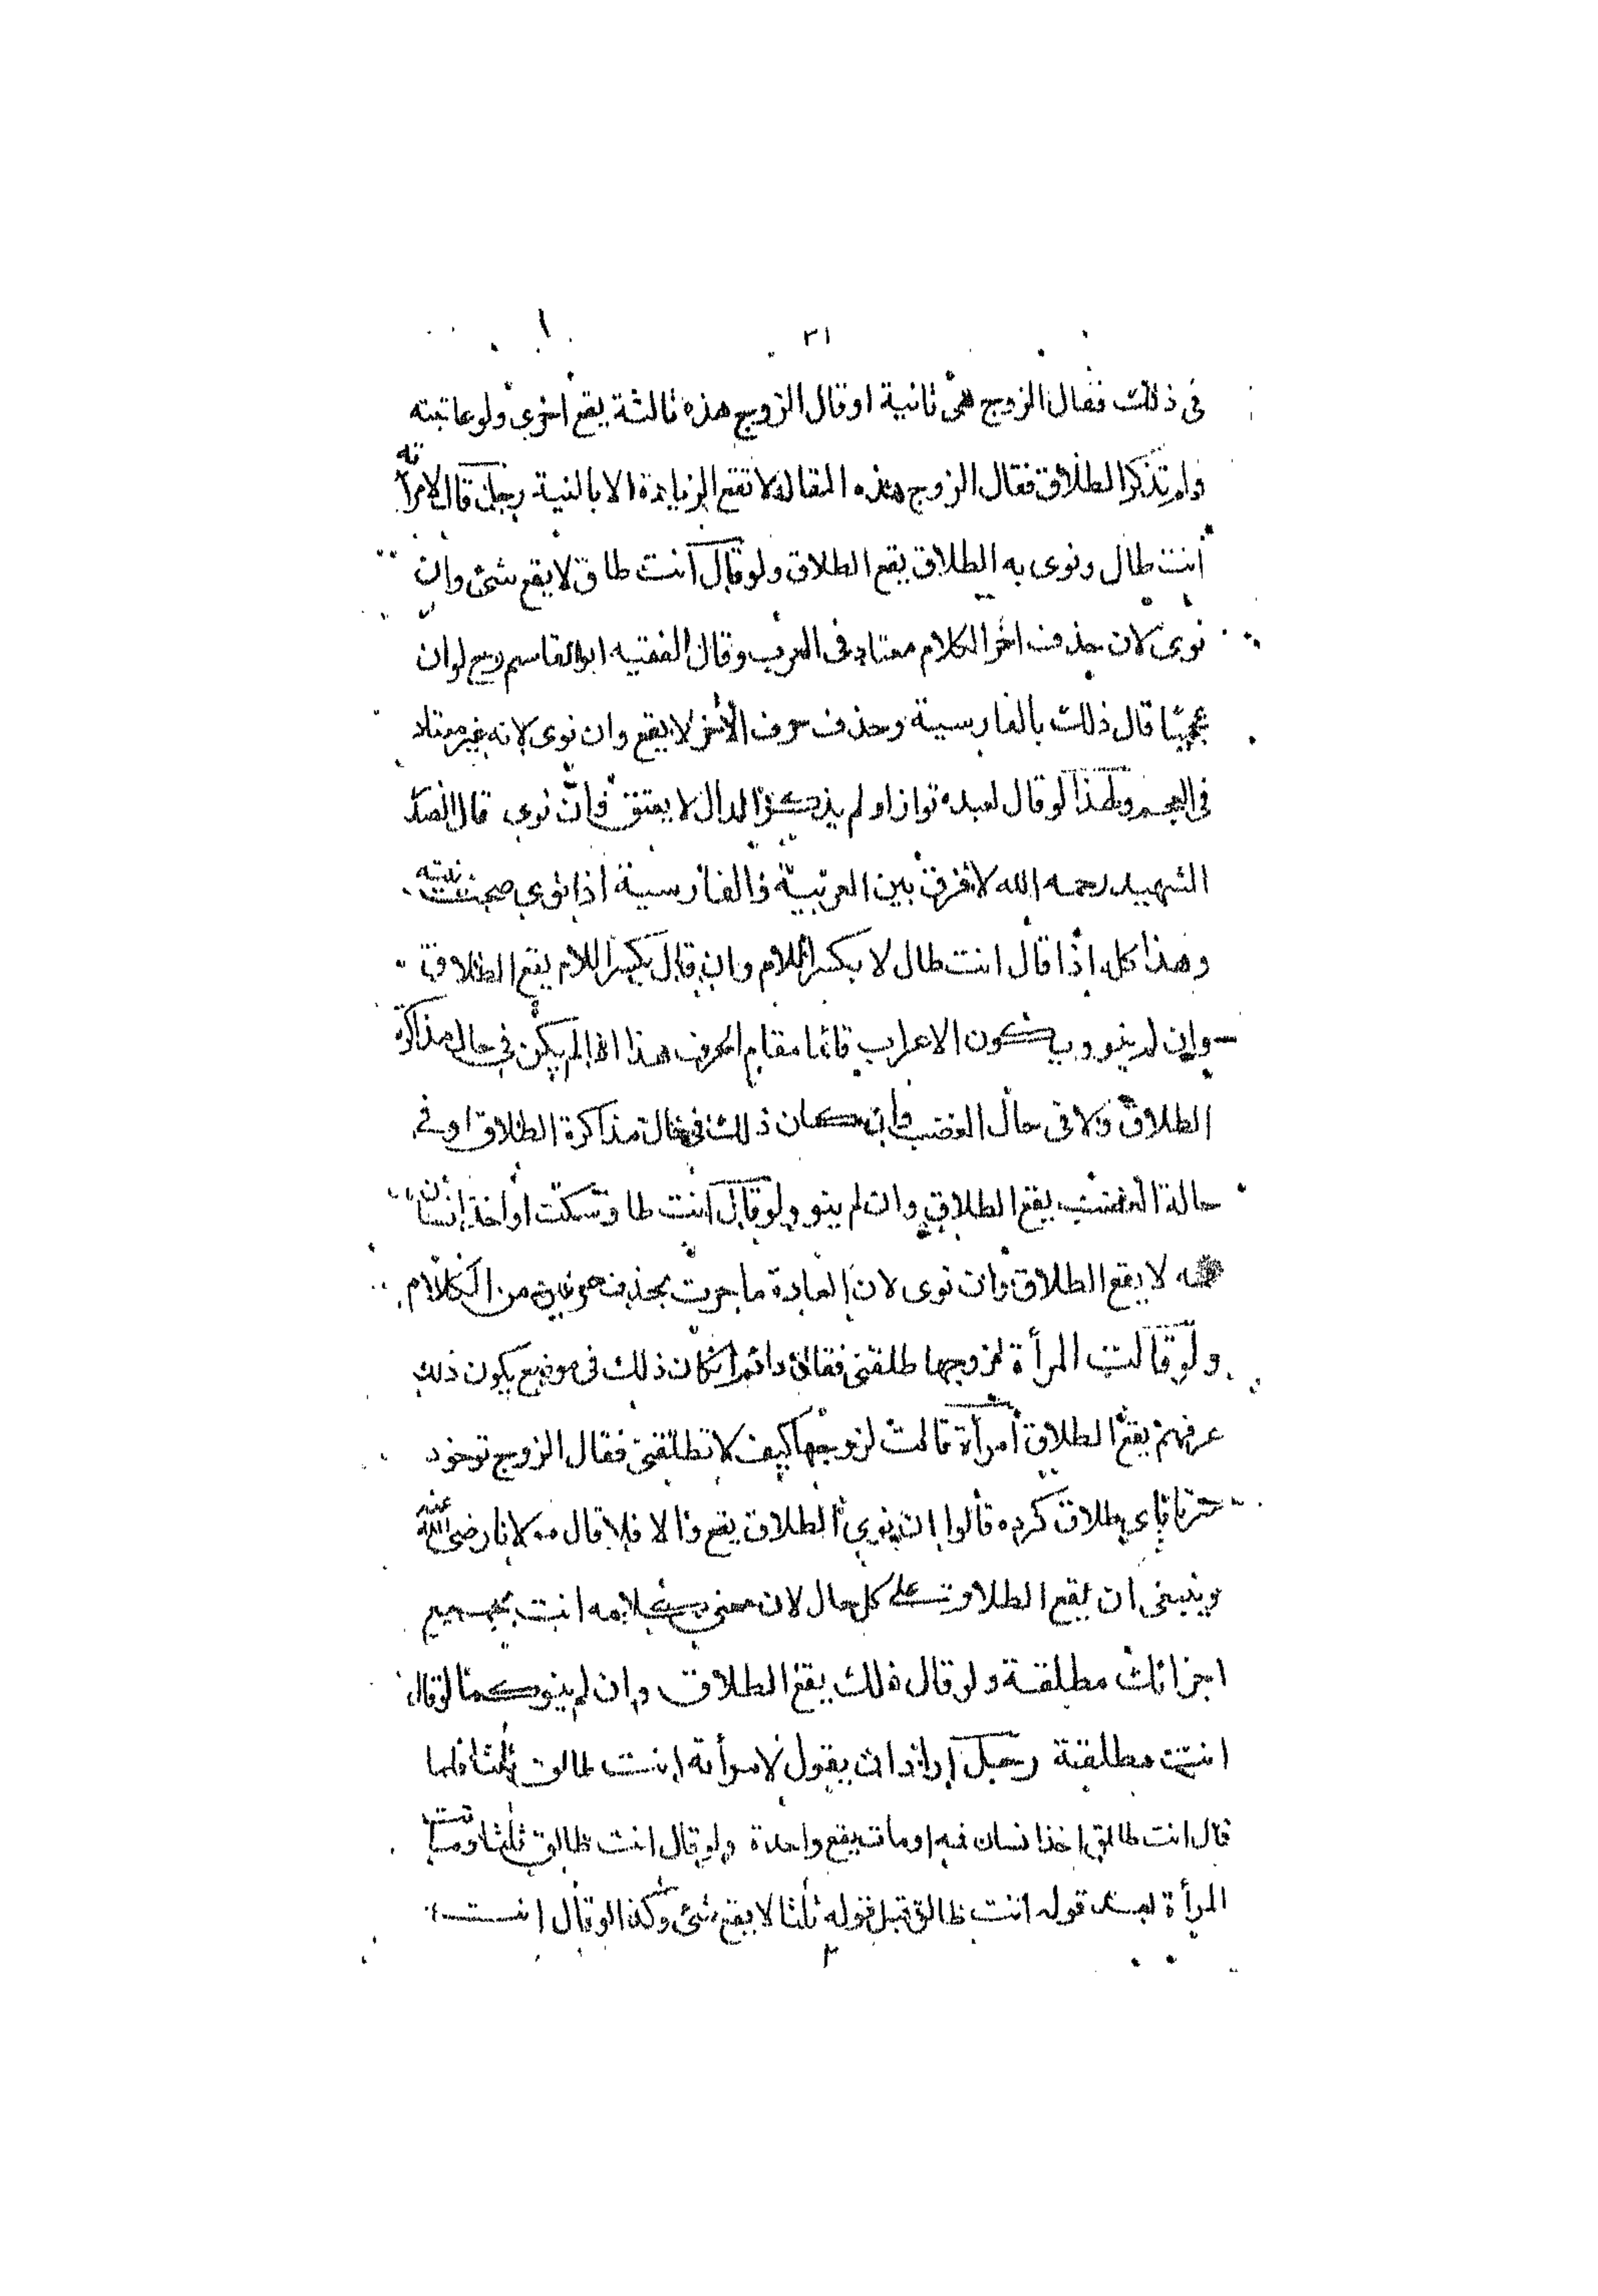 ٣١
فى ذلك فقال الزوج هى ثانية او قال الزوج هذه ثالثة يقع اخرى ولو عاتبته
ولم تذكر الطلاق فقال الزوج هذه المقالة لا تقع الزيادة الا بالنية رجل قال لامرأته
انت طال ونوى به الطلاق يقع الطلاق ولو قال انت طاق لا يقع شئ وان
نوى لان حذف اخر الكلام معتاد فى العرب وقال الفقيه ابو القاسم رح لو ان
عجميا قال ذلك بالفارسية وحذف حرف الآخر لا يقع وان نوى لانه غير معتاد
فى العجم ولهذا لو قال لعبده تو ازا ولم يذكر الدال لا يعتق وان نوى قال الصدر
الشهيد رحمه الله لا فرق بين العربية والفارسية اذا نوى صحت نيته
وهذا كله اذا قال انت طال لا بكسر اللام وان قال بكسر اللام يقع الطلاق
وان لم ينو ويكون الاعراب قائما مقام الحرف هذا اذا لم يكن فى حال مذاكرة
الطلاق ولا فى حال الغضب وان كان ذلك فى حالة مذاكرة الطلاق او فى
حالة الغضب يقع الطلاق وان لم ينو ولو قال انت طا وسكت او اخذ انسان
فمه لا يقع الطلاق وان نوى لان العادة ما جرت بحذف حرفين من الكلام
ولو قالت المرأة لزوجها طلقنى فقال دادم ان كان ذلك فى موضع يكون ذلك
عرفهم يقع الطلاق امرأة قالت لزوجها كيف لا تطلقنى فقال الزوج تو خود
سرتا پاى طلاق كرده قالوا ان نوى الطلاق يقع والا فلا قال مولانا رضى الله عنه
وينبغى ان يقع الطلاق على كل حال لان معنى كلامه انت بجميع
اجزائك مطلقة ولو قال ذلك يقع الطلاق وان لم ينو كما لو قال
انت مطلقة رجل اراد ان يقول لامرأته انت طالق ثلثا فلما
قال انت طالق اخذ انسان فمه او مات يقع واحدة ولو قال انت طالق ثلثا وماتت
المرأة بعد قوله انت طالق قبل قوله ثلثا لا يقع شئ وكذا لو قال انت